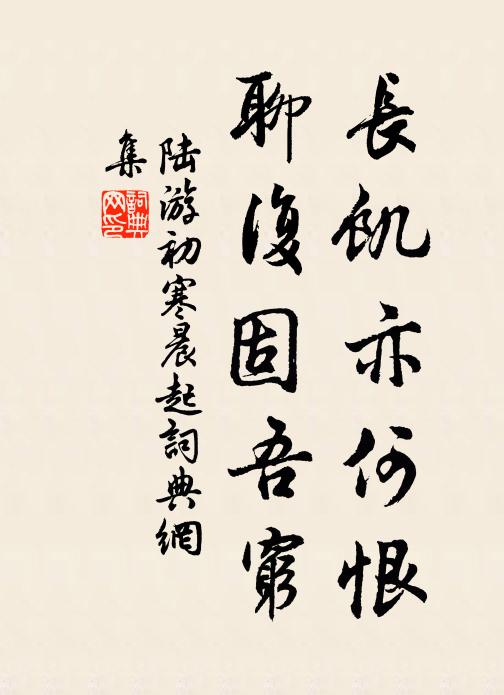 長飢亦何恨
聊復固吾窮
陸游初寒晨起詞典網
集
詞典
网印